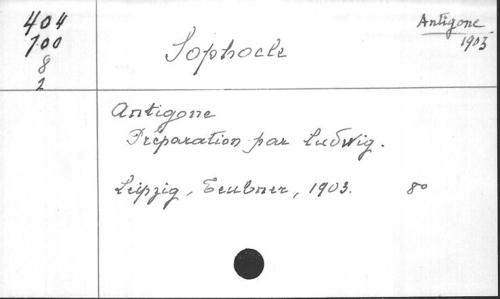 404
700
8
2
Antigone
1903
Sophocle
Antigone
Préparation par Ludwig.
Leipzig, Teubner, 1903. 8°